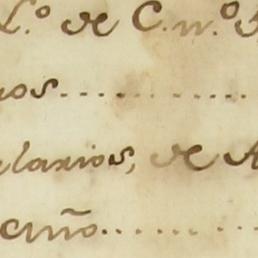 L.º de C. n.º
os..........
larios, de A
eniño........